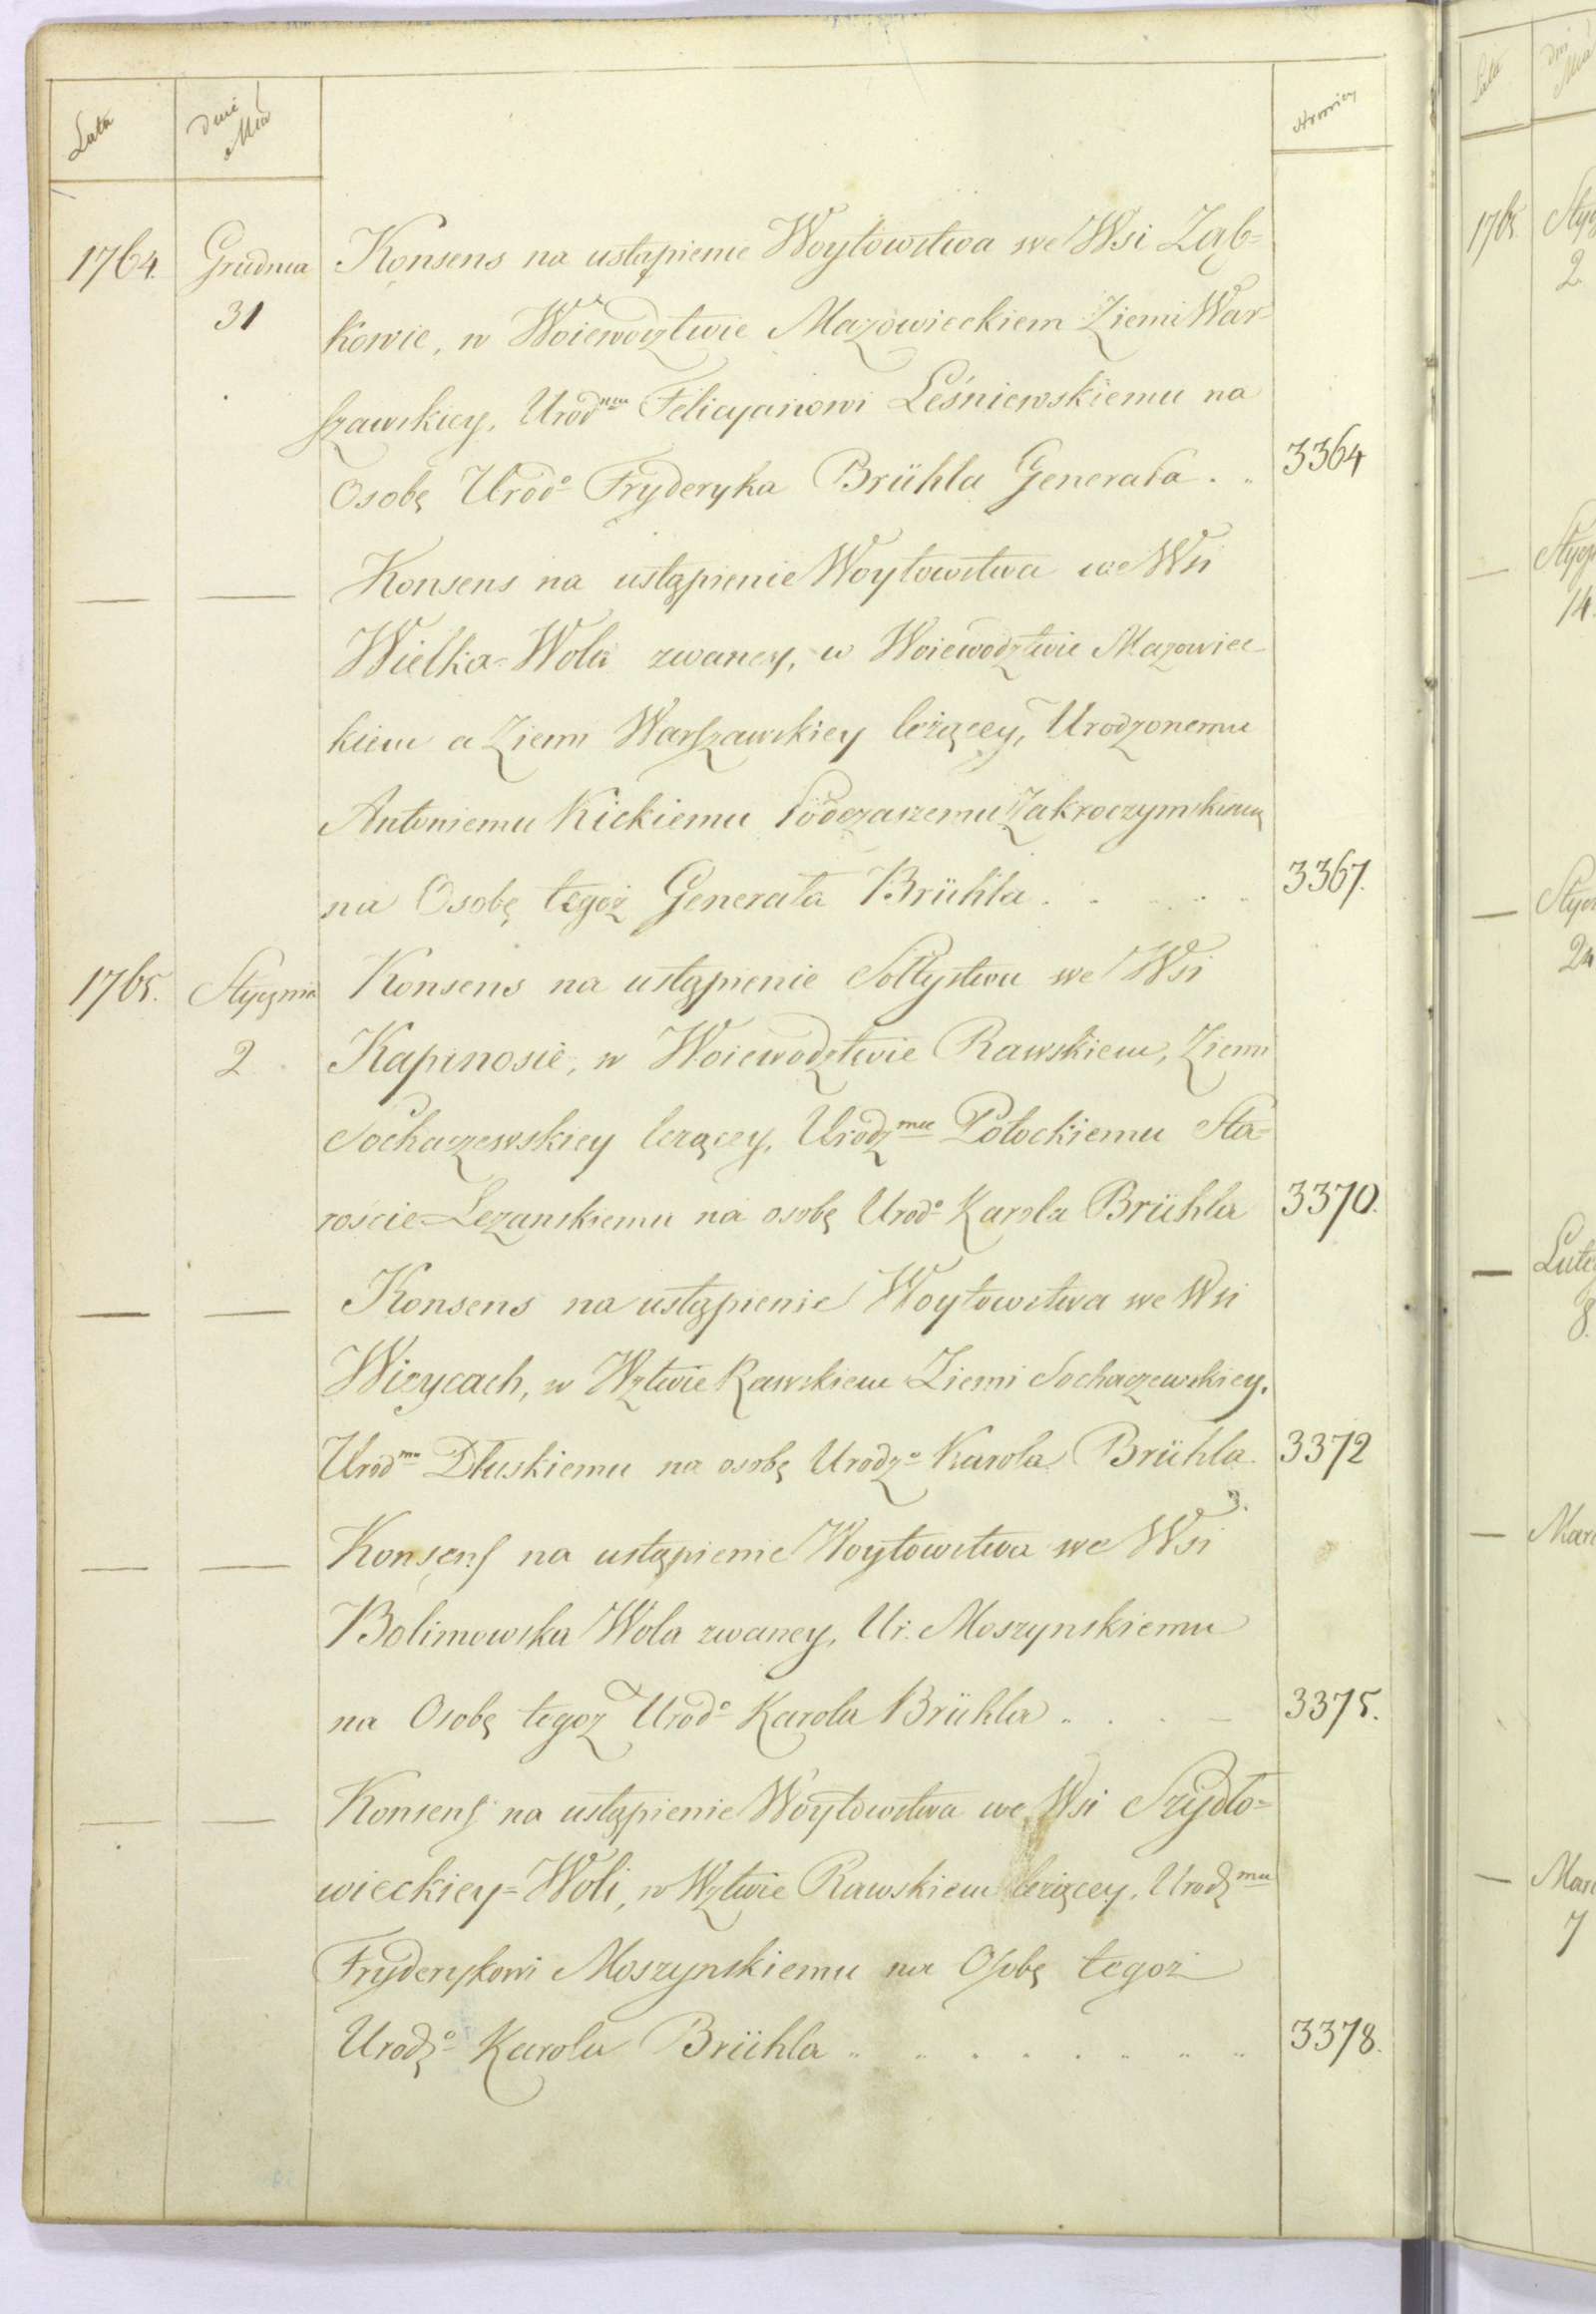 Lata
Dni i Mca
Stronice
1764. Grudnia Konsens na ustąpienie Woytowstwa we Wsi Ząb=
31 kowie, w Woiewodztwie Mazowieckiem Ziemi War-
szawskiey, Urodnmu Felicyanowi Leśniewskiemu na
Osobę Urodo Fryderyka Brühla Generała . .. 3364
— — Konsens na ustąpienie Woytowstwa we Wsi
Wielka=Wola zwaney, w Woiewodztwie Mazowiec-
kiem a Ziemi Warszawskiey leżącey, Urodzonemu
Antoniemu Kickiemu Podczaszemu Zakroczymskiemu
na Osobę tegoż Generała Brühla . . . . .. 3367.
1765. Stycznia Konsens na ustąpienie Sołtystwa we Wsi
2 Kapinosie, w Woiewodztwie Rawskiem, Ziemi
Sochaczewskiey leżącey, Urodzmu Potockiemu Sta=
roscie=Leżanskiemu na osobę Urodo Karola Brühla 3370.
— — Konsens na ustąpienie Woytowstwa we Wsi
Wiżycach, w Wztwie Rawskiem Ziemi Sochaczewskiey.
Urodmu Dłuskiemu na osobę Urodzo Karola Brühla. 3372
— — Konsens na ustąpienie Woytowstwa we Wsi
Bolimowska Wola zwaney, Ur. Moszynskiemu
na Osobę tegoz Urodo Karola Brühla .. . . — 3375.
— — Konsens na ustąpienie Woytowstwa we Wsi Szydło=
wieckiey=Woli, w Wztwie Rawskiem leżącey, Urodzmu
Fryderykowi Moszynskiemu na Osobę tegoż
Urodzo Karola Brühla .. .. . . . .. .. .. 3378.
Lata
Dni
1765.
2.
—
14.
—
24
—
8.
—
—
7